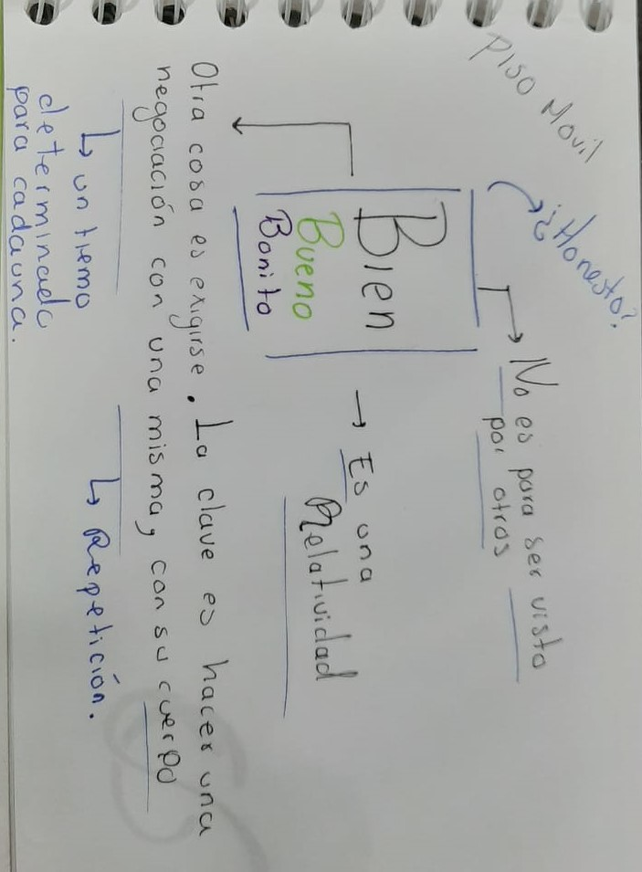 Piso Movil
¿Honesto?
No es para ser visto
por otros
Bien
Bueno
Bonito
→ Es una
Relatividad
Otra cosa es exigirse. La clave es hacer una
negociación con una misma, con su cuerpo
↳ un tiemo
determinado
para cada una.
↳ Repetición.